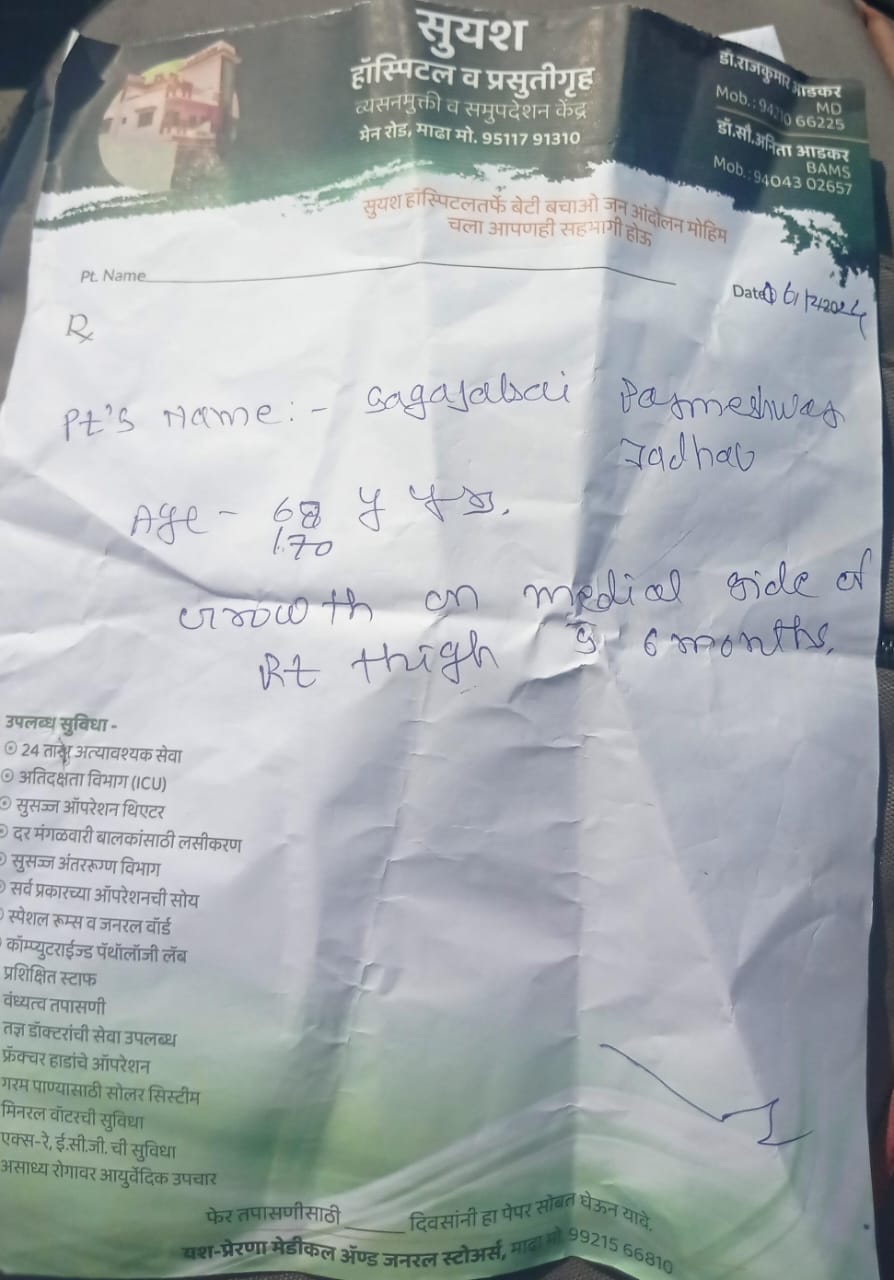 सुयश
हॉस्पिटल व प्रसुतीगृह
व्यसनमुक्ती व समुपदेशन केंद्र
मेन रोड, माढा मो. 95117 91310
डॉ.राजकुमार आडकर
MD
Mob.: 66225
डॉ.सौ.अनिता आडकर
BAMS
Mob.: 94043 02657
सुयश हॉस्पिटलतर्फे बेटी बचाओ जन आंदोलन मोहिम
चला आपणही सहभागी होऊ
Pt. Name
Date
Rx
Pt's Name:- Parmeshwar
Jadhav
Age - 68 y yrs.
1.70
Growth on medial side of
Rt thigh 6 months.
उपलब्ध सुविधा -
24 तास अत्यावश्यक सेवा
अतिदक्षता विभाग (ICU)
सुसज्ज ऑपरेशन थिएटर
दर मंगळवारी बालकांसाठी लसीकरण
सुसज्ज अंतररूग्ण विभाग
सर्व प्रकारच्या ऑपरेशनची सोय
स्पेशल रूम्स व जनरल वॉर्ड
कॉम्प्युटराईज्ड पॅथॉलॉजी लॅब
प्रशिक्षित स्टाफ
वंध्यत्व तपासणी
तज्ञ डॉक्टरांची सेवा उपलब्ध
फ्रॅक्चर हाडांचे ऑपरेशन
गरम पाण्यासाठी सोलर सिस्टीम
मिनरल वॉटरची सुविधा
एक्स-रे, ई.सी.जी. ची सुविधा
असाध्य रोगावर आयुर्वेदिक उपचार
फेर तपासणीसाठी ______ दिवसांनी हा पेपर सोबत घेऊन यावे.
यश-प्रेरणा मेडीकल ॲण्ड जनरल स्टोअर्स, माढा मो. 99215 66810